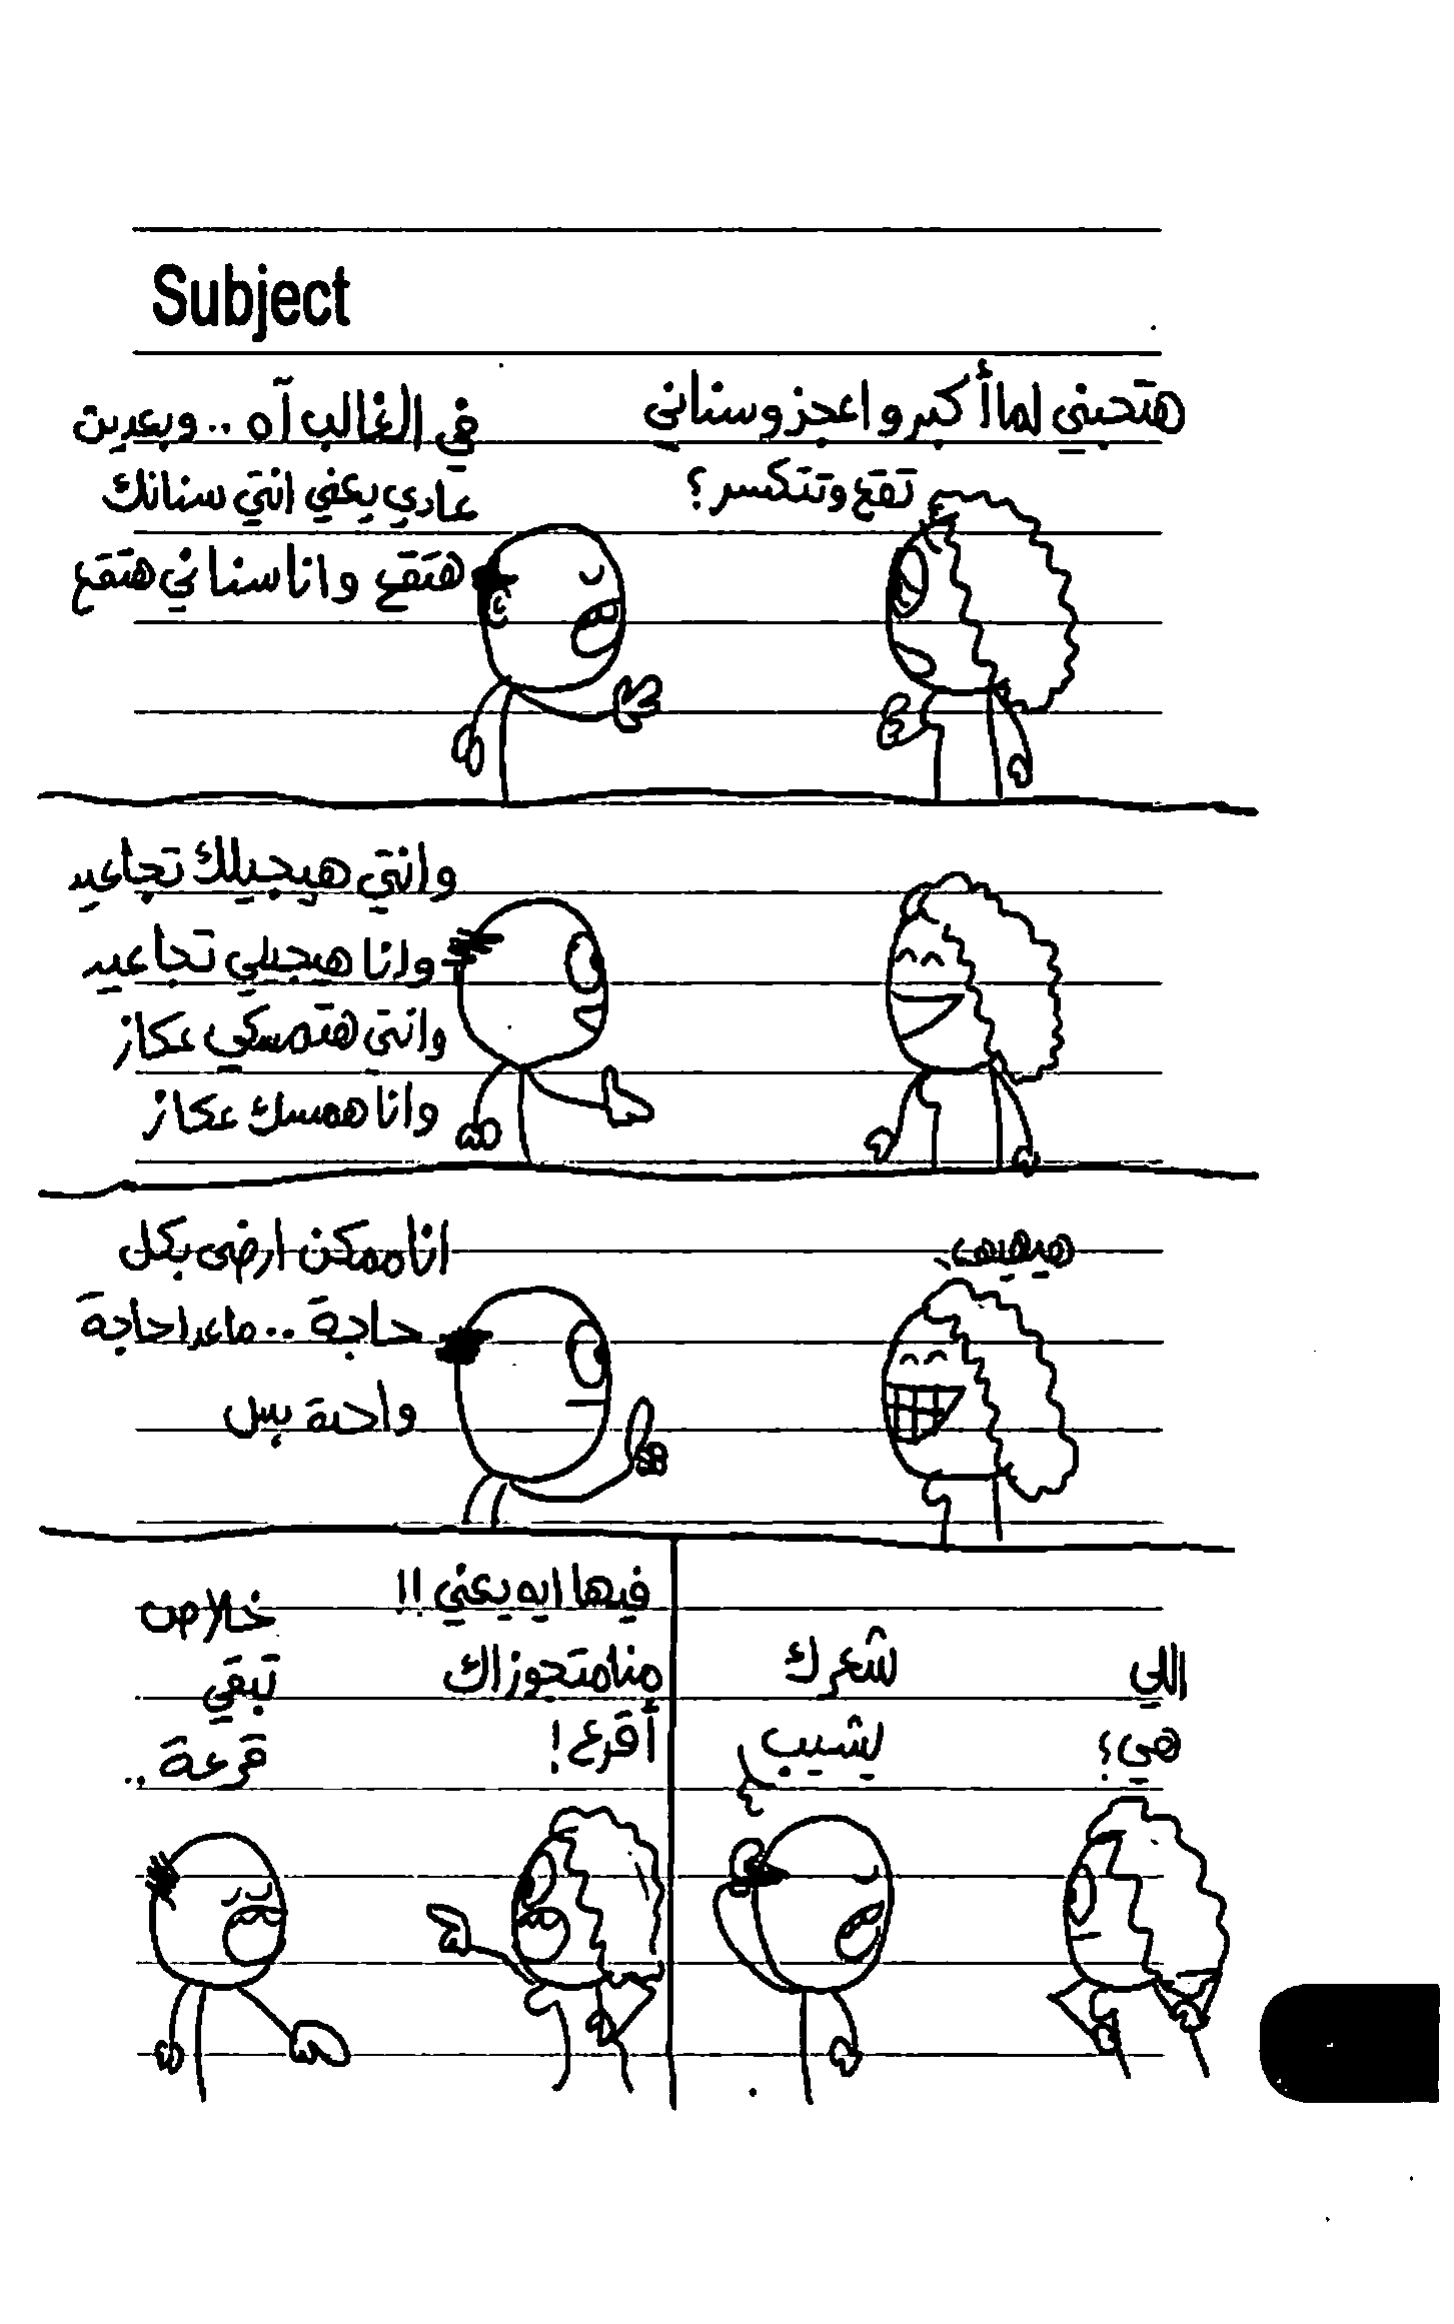 Subject
هتحبني لما أكبر واعجز وسناني
تقع وتتكسر؟
في الغالب آه .. وبعدين
عادي يعني انتي سنانك
هتقع وانا سناني هتقع
وانتي هيجيلك تجاعيد
وانا هيجيلي تجاعيد
وانتي هتمسكي عكاز
وانا همسك عكاز
هيهيهي
انا ممكن ارضى بكل
حاجة .. ماعدا حاجة
واحدة بس
اللي
هي؟
شعرك
يشيب
فيها ايه يعني !!
منا متجوزاك
أقرع !
خلاص
تبقي
قرعة ..